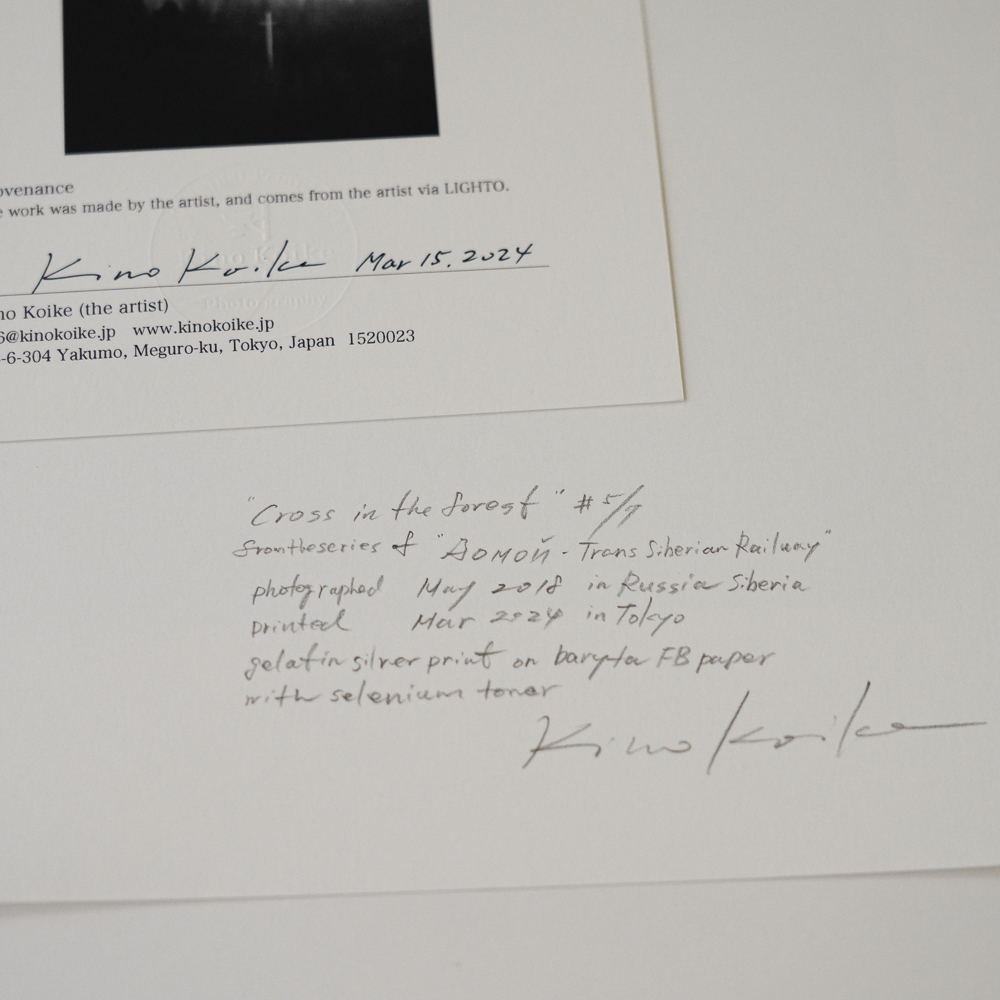 ovenance
e work was made by the artist, and comes from the artist via LIGHTO.
Kino Koike Mar 15. 2024
Kino Koike
Photography
no Koike (the artist)
6@kinokoike.jp www.kinokoike.jp
-6-304 Yakumo, Meguro-ku, Tokyo, Japan 1520023
"Cross in the forest" #5/7
from the series of "Домой - Trans Siberian Railway"
photographed May 2018 in Russia Siberia
printed Mar 2024 in Tokyo
gelatin silver print on baryta FB paper
with selenium toner
Kino Koike